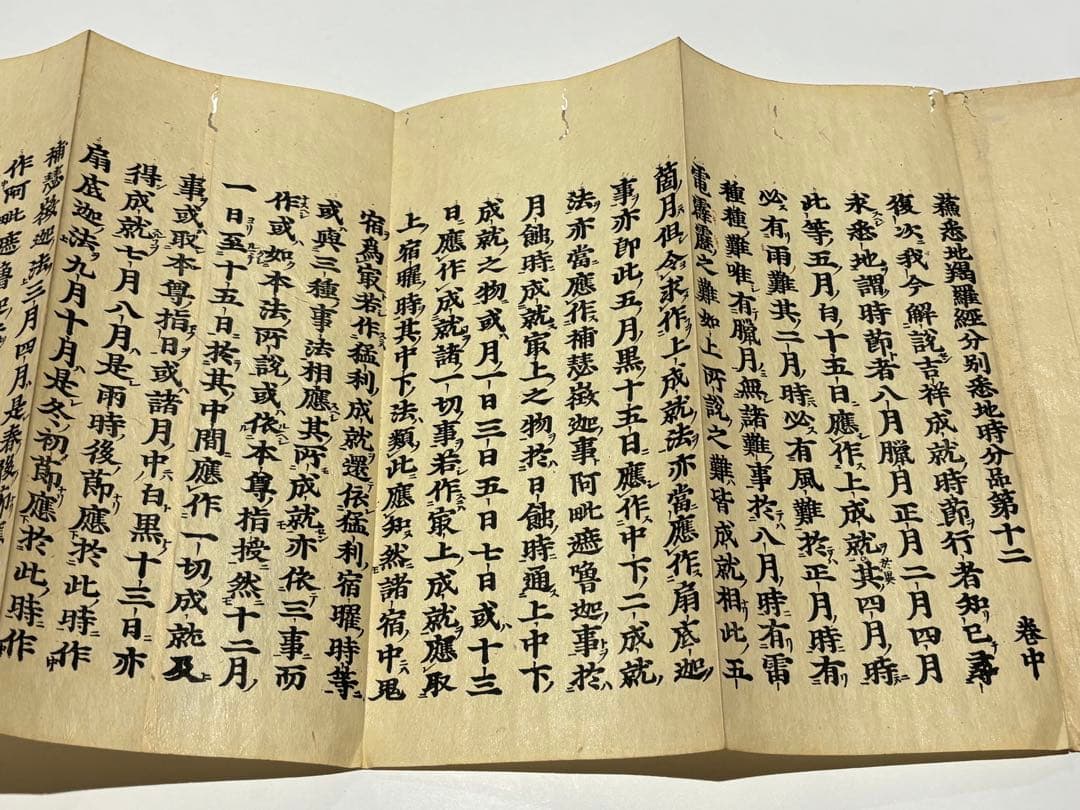 蘇悉地羯羅經分別悉地時分品第十二 卷中
復次我今解說吉祥成就時節行者知已尋
求悉地謂時節者八月臘月正月二月四月
此等五月白十五日應作上成就其四月時
必有雨難其二月時必有風難於正月時有
種種難唯有臘月無諸難事於八月時有雷
電霹靂之難如上所說之難皆成就相此五
箇月但令求作上成就法亦當應作扇底迦
事亦即此五月黑十五日應作中下二成就
法亦當應作補瑟徵迦事阿毗遮嚕迦事於
月蝕時成就最上之物於日蝕時通上中下
成就之物或月一日三日五日七日或十三
日應作成就諸一切事若作最上成就應取
上宿曜時其中下法類此應知然諸宿中鬼
宿為最若作猛利成就還依猛利宿曜時等
或與三種事法相應其所成就亦依三事而
作或如本法所說或依本尊指授然十二月
一日至十五日於其中間應作一切成就及
事或取本尊指日或諸月中白黑十三日亦
得成就七月八月是雨時後節應於此時作
扇底迦法九月十月是冬初節應於此時作
補瑟徵迦法三月四月是春後節
作阿毗遮嚕